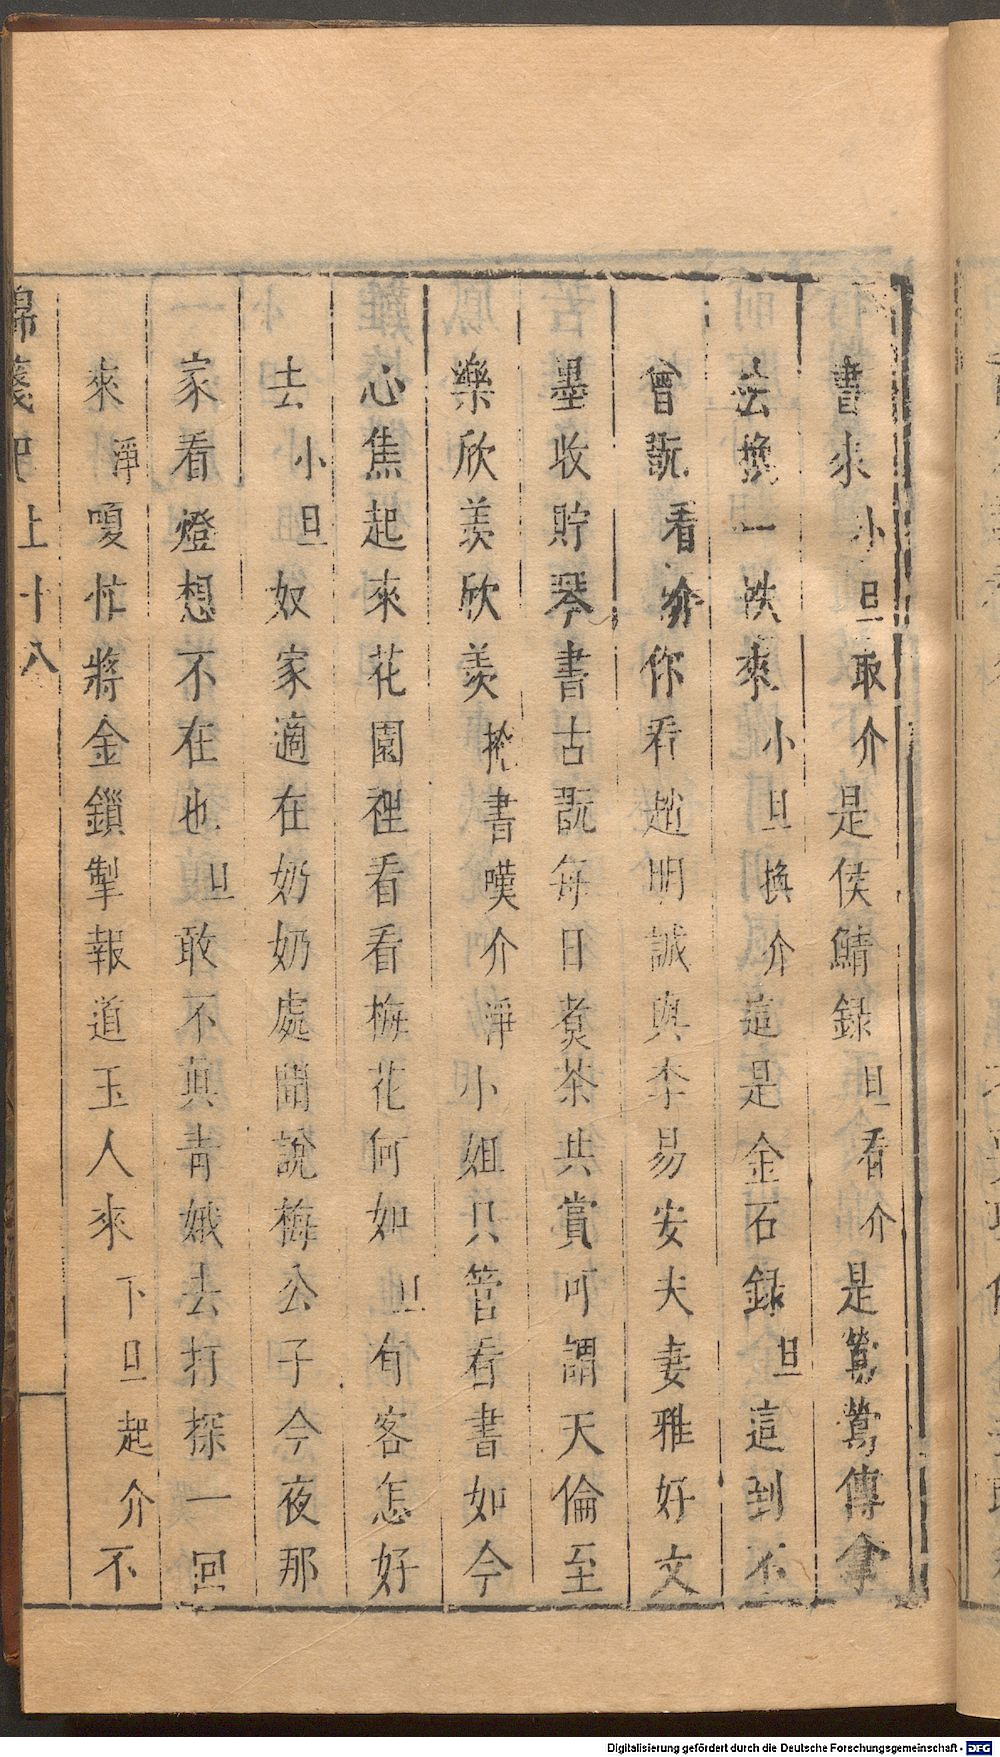 書來小旦取介是侯鯖録旦看介是鶯鶯傳拿
去換一帙來小旦換介這是金石録旦這到不
曾翫看介你看趙明誠與李易安夫妻雅好文
墨收貯琴書古翫每日煑茶共賞可謂天倫至
樂欣羡欣羡掩書嘆介淨小姐只管看書如今
心焦起來花園裡看看梅花何如旦有客怎好
去小旦奴家適在奶奶處聞說梅公子今夜那
家看燈想不在也旦敢不真青娥去打探一回
來淨嗄忙將金鎖掣報道玉人來下旦起介不
錦箋記上十八
Digitalisierung gefördert durch die Deutsche Forschungsgemeinschaft - DFG